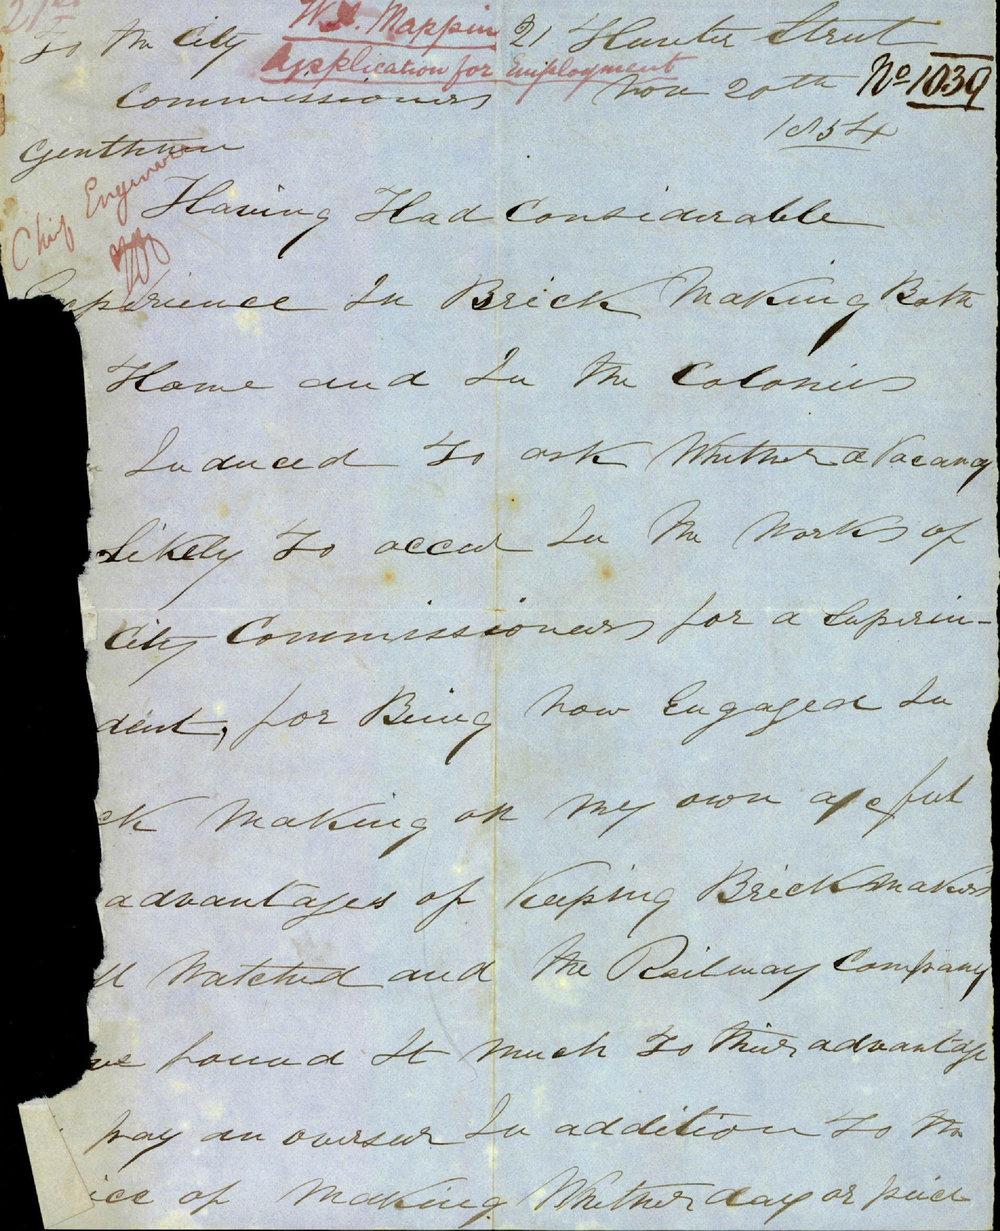 21st
W. A. Mappin
Application for Employment
No 1039
To the City 21 Hunter Street
Commissioners Nov 20th
1854
Gentlemen
Chief Engineer
Having Had Considerable
Experience In Brick Making Both
Home and In the Colonies
Induced To ask Whether a Vacancy
likely To occur In the Works of
City Commissioners for a Superin-
dent, for Being now Engaged In
ck Making on my own a/c I feel
advantages of Keeping Brickmakers
ll Watched and the Railway Company
ve found It much To their advantage
pay an overseer In addition To the
ice of Making Whether day or piece